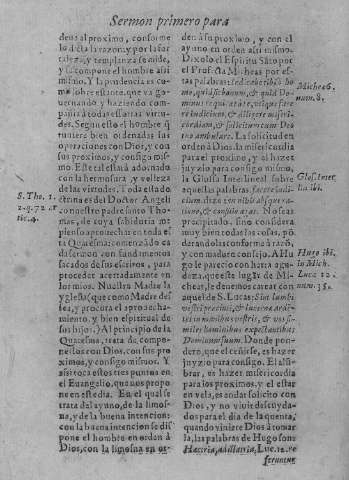 Sermon primero para
den al proximo, conforme
lo dicta la razon: y por la for
taleza, y templança se mide,
y se compone el hombre assi
mismo. Y la prudencia es co
mo sobrestante, que va go-
uernando y haziendo com-
pañia a todas estas virtu-
des. Segun esto el hombre q̃
tuuiere bien ordenadas sus
operaciones con Dios, y con
sus proximos, y consigo mis-
mo. Este tal estará adornado
con la hermosura y belleza
de las virtudes. Toda esta do
ctrina es del Doctor Angeli
co nuestro padre santo Tho-
mas, de cuya sabiduria me
pienso aprouechar en toda es
ta Quaresma: començo a
da sermon con fundamentos
sacados de sus escritos, para
proceder acertadamente en
los mios. Nuestra Madre la
Yglesia (que como Madre des
sea, y procura el aprouecha-
miento, y bien espiritual de
sus hijos) Al principio de la
Quaresma, trata de compo-
nerlos con Dios, con sus pro
ximos, y consigo mismos. Y
assi toca estos tres puntos en
el Euangelio, que nos propo
ne en este dia. En el qual se
trata del ayuno, de la limos-
na, y de la buena intencion:
con la buena intencion se dis
pone el hombre en orden à
Dios, con la limosna en or-
S. Tho. 1.
2. q. 72. ar
tic. 4.
den à su proximo, y con el
ayuno en orden assi mismo.
Dixolo el Espiritu Santo por
el Profeta Micheas por es-
tas palabras:
mo, quid sit bonum, & quid Do-
minus requirat à te, vtique facere
iudicium, & diligere miseri-
cordiam, & solicitum cum Deo
tuo ambulare. La solicitud nos
ordena à Dios, la misericor
dia para el proximo, y al hazer
juyzio para consigo mismo,
la Glossa Lineal sobre
aquellas palabras, facere iudi-
cium, dize:
No seas
precipitado, sino considera
muy bien todas las cosas, po
derandolas conforme à razõ,
y mandamiento consejo. A Hu
go le parecio con harta agu-
deza, que este lugar de Mi-
cheas, le deuemos carear con
aquel de S. Lucas: Sint lumbi
vestri præcincti, & lucernæ arden
tes in manibus vestris, & vos si-
miles hominibus expectantibus
Dominum suum. Donde pon-
dero, que el ceñirse, es hazer
juyzio para consigo. El alu-
brar, es hazer misericordia
para los proximos, y el estar
en vela, es andar solicito con
Dios, y no viuir descuyda-
dos para el dia de la quenta,
quando viniere Dios à tomar
la, las palabras de Hugo son:
Luc. 12. re
feruntur
Micheæ 6.
num. 8.
Glos. Inter
lin. ibi.
Hugo ibi.
in Mich.
Luca 12.
num. 35.